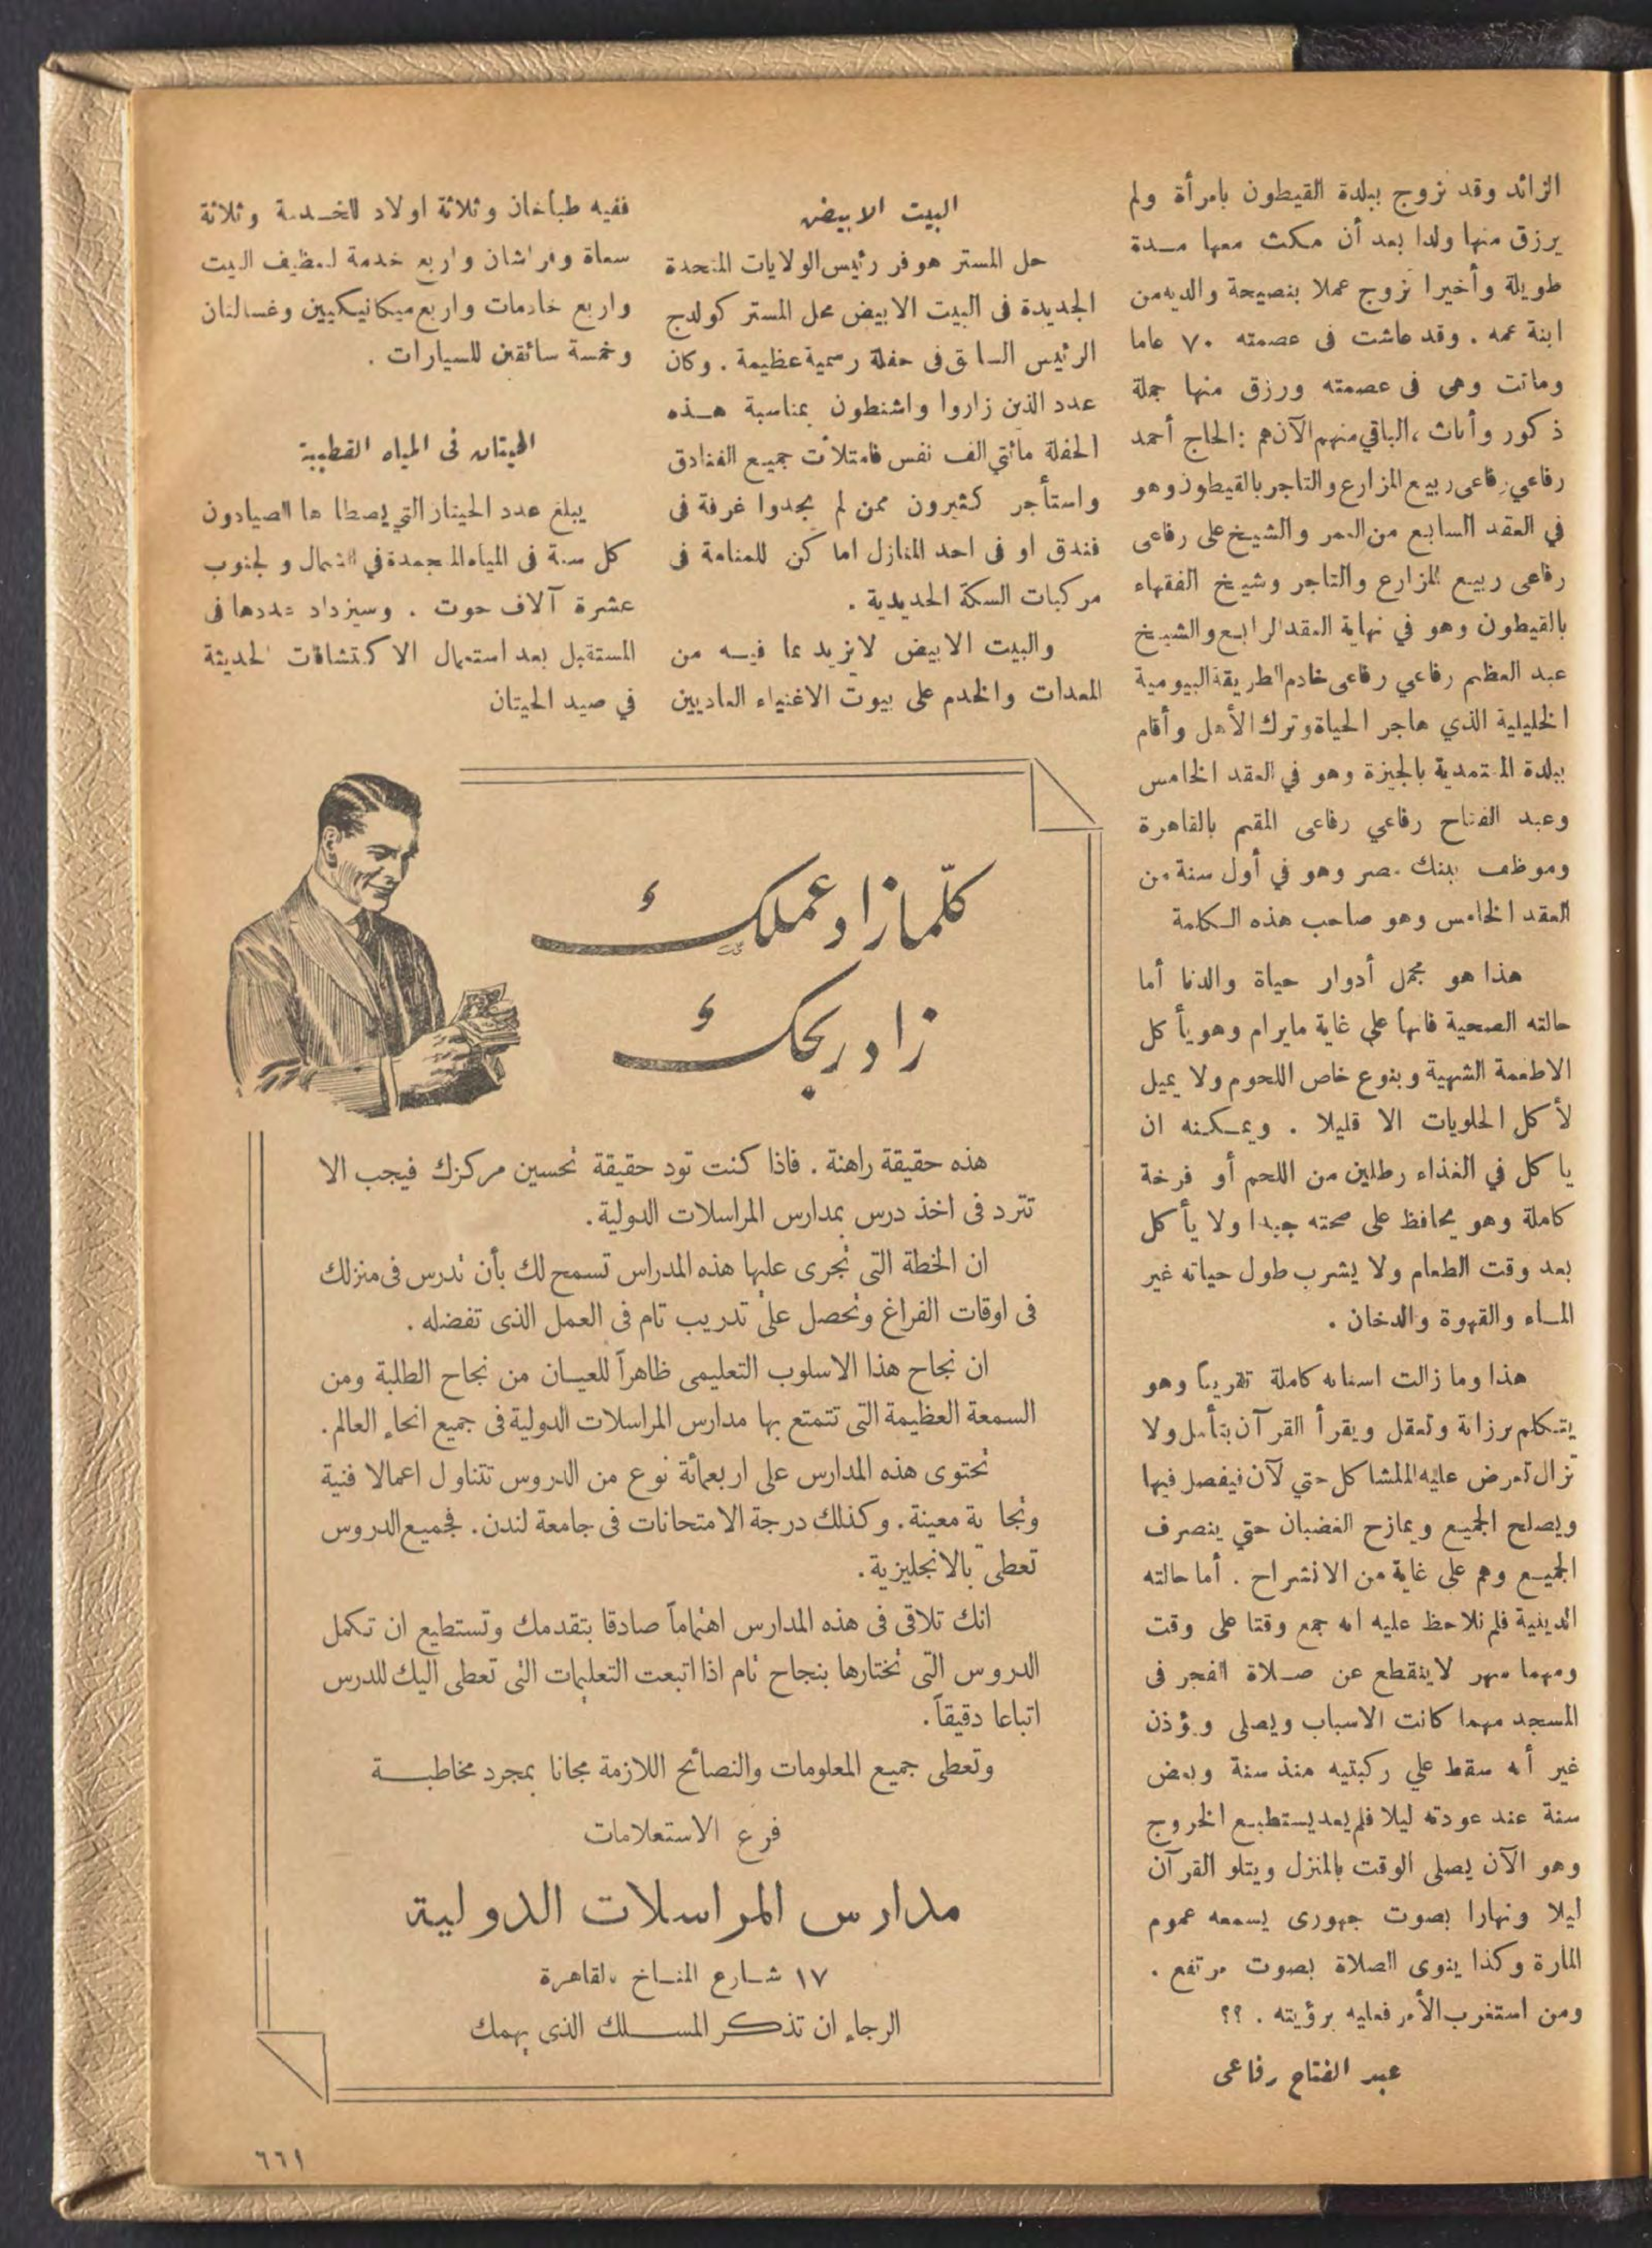 الزائد وقد تزوج ببلدة القيطون بامرأة ولم
يرزق منها ولدا بعد أن مكث معها مدة
طويلة وأخيرا تزوج عملا بنصيحة والديه من
ابنة عمه . وقد عاشت فى عصمته ٧٠ عاما
وماتت وهى فى عصمته ورزق منها جملة
ذكور وأناث ، الباقي منهم الآن هم : الحاج أحمد
رفاعي رفاعى ربيع المزارع والتاجر بالقيطون وهو
في العقد السابع من العمر والشيخ على رفاعى
رفاعى ربيع المزارع والتاجر وشيخ الفقهاء
بالقيطون وهو في نهاية العقد الرابع والشيخ
عبد العظيم رفاعي رفاعى خادم الطريقة البيومية
الخليلية الذي هاجر الحياة وترك الأهل وأقام
ببلدة المعتمدية بالجيزة وهو في العقد الخامس
وعبد الفتاح رفاعي رفاعى المقيم بالقاهرة
وموظف ببنك مصر وهو في أول سنة من
العقد الخامس وهو صاحب هذه الكلمة
هذا هو مجمل أدوار حياة والدنا أما
حالته الصحية فانها علي غاية مايرام وهو يأكل
الاطعمة الشهية وبنوع خاص اللحوم ولا يميل
لأكل الحلويات الا قليلا . ويمكنه ان
ياكل في الغذاء رطلين من اللحم أو فرخة
كاملة وهو يحافظ على صحته جيدا ولا يأكل
بعد وقت الطعام ولا يشرب طول حياته غير
الماء والقهوة والدخان .
هذا وما زالت اسنانه كاملة تقريباً وهو
يتكلم برزانة وتعقل ويقرأ القرآن بتأمل ولا
تزال تعرض عليه المشاكل حتي لآن فيفصل فيها
ويصلح الجميع ويمازح الغضبان حتي ينصرف
الجميع وهم على غاية من الانشراح . أما حالته
الدينية فلم نلاحظ عليه انه جمع وقتا على وقت
ومهما سهر لا ينقطع عن صلاة الفجر فى
المسجد مهما كانت الاسباب ويصلى ويؤذن
غير أنه سقط علي ركبتيه منذ سنة وبعض
سنة عند عودته ليلا فلم يعد يستطيع الخروج
وهو الآن يصلى الوقت بالمنزل ويتلو القرآن
ليلا ونهارا بصوت جهورى يسمعه عموم
المارة وكذا ينوى الصلاة بصوت مرتفع .
ومن استغرب الأمر فعليه برؤيته . ؟؟
عبد الفتاح رفاعى
البيت الابيض
حل المستر هوفر رئيس الولايات المتحدة
الجديدة فى البيت الابيض محل المستر كولدج
الرئيس السابق فى حفلة رسمية عظيمة . وكان
عدد الذين زاروا واشنطون بمناسبة هذه
الحفلة مائتي الف نفس فامتلأت جميع الفنادق
واستأجر كثيرون ممن لم يجدوا غرفة فى
فندق او فى احد المنازل اماكن للمنامة فى
مركبات السكة الحديدية .
والبيت الابيض لا تزيد عما فيه من
المعدات والخدم على بيوت الاغنياء العاديين
ففيه طباخان وثلاثة اولاد للخدمة وثلاثة
سعاة وفراشان واربع خدمة لتنظيف البيت
واربع خادمات واربع ميكانيكيين وغسالتان
وخمسة سائقين للسيارات .
الحيتان فى المياه القطبية
يبلغ عدد الحيتان التي يصطادها الصيادون
كل سنة فى المياه المتجمدة في الشمال والجنوب
عشرة آلاف حوت . وسيزداد عددها فى
المستقبل بعد استعمال الاكتشافات الحديثة
في صيد الحيتان
كلّما زاد عملك
زاد ربحك
هذه حقيقة راهنة . فاذا كنت تود حقيقة تحسين مركزك فيجب الا
تترد فى اخذ درس بمدارس المراسلات الدولية .
ان الخطة التى تجرى عليها هذه المدراس تسمح لك بأن تدرس فى منزلك
فى اوقات الفراغ وتحصل على تدريب تام فى العمل الذى تفضله .
ان نجاح هذا الاسلوب التعليمى ظاهراً للعيان من نجاح الطلبة ومن
السمعة العظيمة التى تتمتع بها مدارس المراسلات الدولية فى جميع انحاء العالم .
تحتوى هذه المدارس على اربعمائة نوع من الدروس تتناول اعمالا فنية
وتجا ية معينة . وكذلك درجة الامتحانات فى جامعة لندن . فجميع الدروس
تعطى بالانجليزية .
انك تلاقى فى هذه المدارس اهتماماً صادقا بتقدمك وتستطيع ان تكمل
الدروس التى تختارها بنجاح تام اذا اتبعت التعليمات التى تعطى اليك للدرس
اتباعا دقيقاً .
وتعطى جميع المعلومات والنصائح اللازمة مجانا بمجرد مخاطبة
فرع الاستعلامات
مدارس المراسلات الدولية
١٧ شارع المناخ بالقاهرة
الرجاء ان تذكر المسلك الذى يهمك
٦٦١